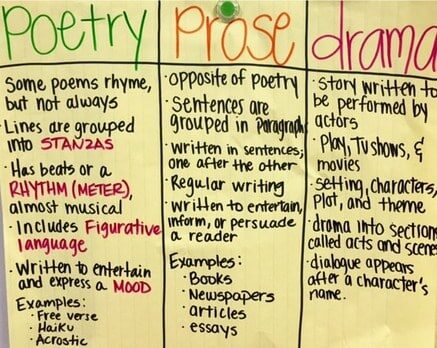 Poetry
Some poems rhyme,
but not always
Lines are grouped
into STANZAS
Has beats or a
RHYTHM (METER),
almost musical
Includes Figurative
language
Written to entertain
and express a MOOD
Examples:
Free verse
Haiku
Acrostic
Prose
opposite of poetry
Sentences are
grouped in Paragraph
written in sentences;
one after the other
Regular writing
written to entertain,
inform, or persuade
a reader
Examples:
Books
Newspapers
articles
essays
drama
story written to
be performed by
actors
Play, TV shows, &
movies
setting, characters,
Plot, and theme
drama into section
called acts and scene
dialogue appears
after a character's
name.